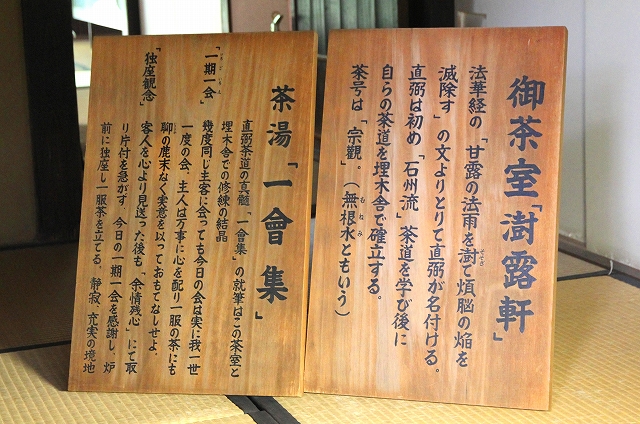 御茶室「澍露軒」
法華経の「甘露の法雨を澍て煩脳の焔を
そそぎ
滅除す」の文よりとりて直弼が名付ける。
直弼は初め「石州流」茶道を学び後に
自らの茶道を埋木舎で確立する。
茶号は「宗觀」。(無根水ともいう)
むねみ
茶湯「一會集」
直弼茶道の真髄「一會集」の就筆はこの茶室と
埋木舎での修練の結晶
「一期一会」
幾度同じ主客に会っても今日の会は実に我一世
一度の会、主人は万事に心を配り一服の茶にも
聊の麁末なく実意を以っておもてなしせよ、
「独座観念」
客人を心より見送った後も「余情残心」にて取
り片付を急がす、今日の一期一会を感謝し、炉
前に独座し一服茶を立てる、静寂、充実の境地